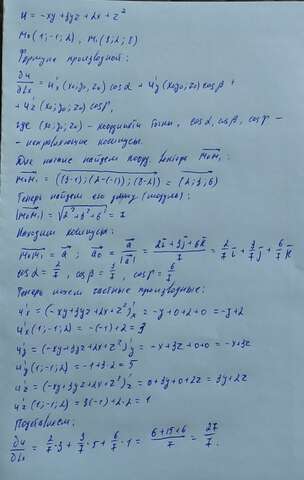 u = -xy + 3yz + 2x + z²
M₀(1; -1; 2), M₁(3; 2; 8)
Формула производной:
∂u/∂l₂ = u'ₓ(x₀; y₀; z₀) cosα + u'y(x₀; y₀; z₀) cosβ +
+ u'z(x₀; y₀; z₀) cosγ,
где (x₀; y₀; z₀) - координаты точки, cosα, cosβ, cosγ -
- направляющие косинусы.
Для начала найдем коорд. вектора M₀M₁:
M₀M₁ = ((3-1); (2-(-1)); (8-2)) = (2; 3; 6)
Теперь найдем его длину (модуль):
|M₀M₁| = √(2² + 3² + 6²) = 7
Находим косинусы:
M₀M₁ = a; a₀ = a/|a| = (2i + 3j + 6k)/7 = 2/7 i + 3/7 j + 6/7 k
cosα = 2/7, cosβ = 3/7, cosγ = 6/7
Теперь ищем частные производные:
u'ₓ = (-xy + 3yz + 2x + z²)'ₓ = -y + 0 + 2 + 0 = -y + 2
u'ₓ(1; -1; 2) = -(-1) + 2 = 3
u'y = (-xy + 3yz + 2x + z²)'y = -x + 3z + 0 + 0 = -x + 3z
u'y(1; -1; 2) = -1 + 3·2 = 5
u'z = (-xy + 3yz + 2x + z²)'z = 0 + 3y + 0 + 2z = 3y + 2z
u'z(1; -1; 2) = 3(-1) + 2·2 = 1
Подставляем:
∂u/∂l₂ = 2/7 · 3 + 3/7 · 5 + 6/7 · 1 = (6 + 15 + 6)/7 = 27/7.